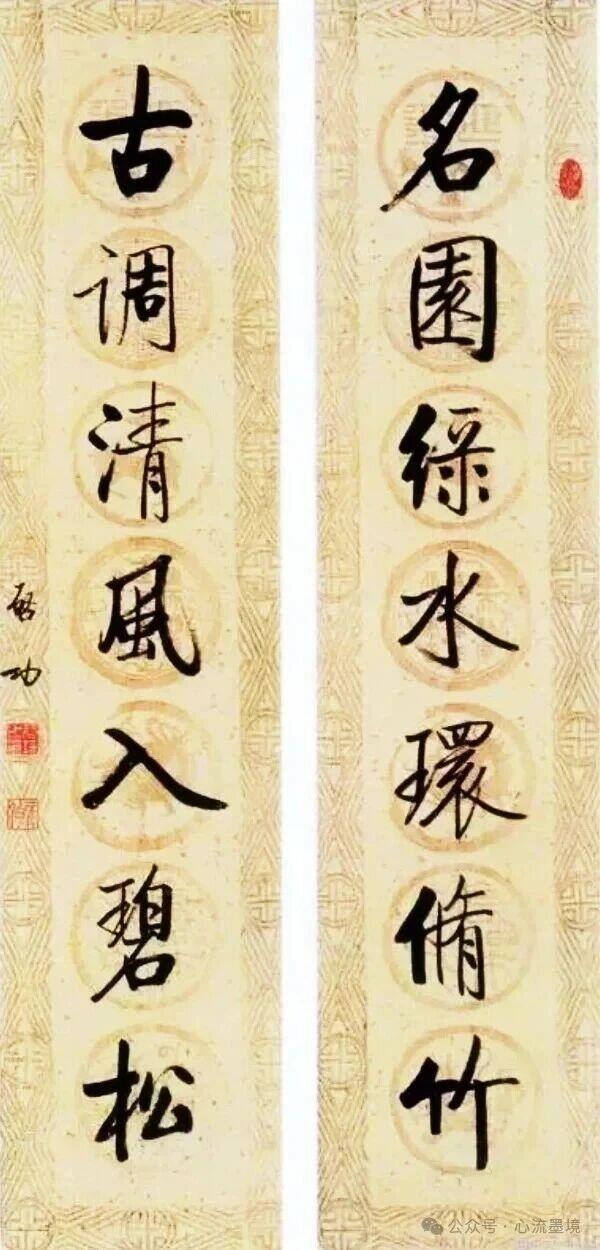 名園緑水環脩竹
古调清風入碧松
啓功
公众号·心流墨境